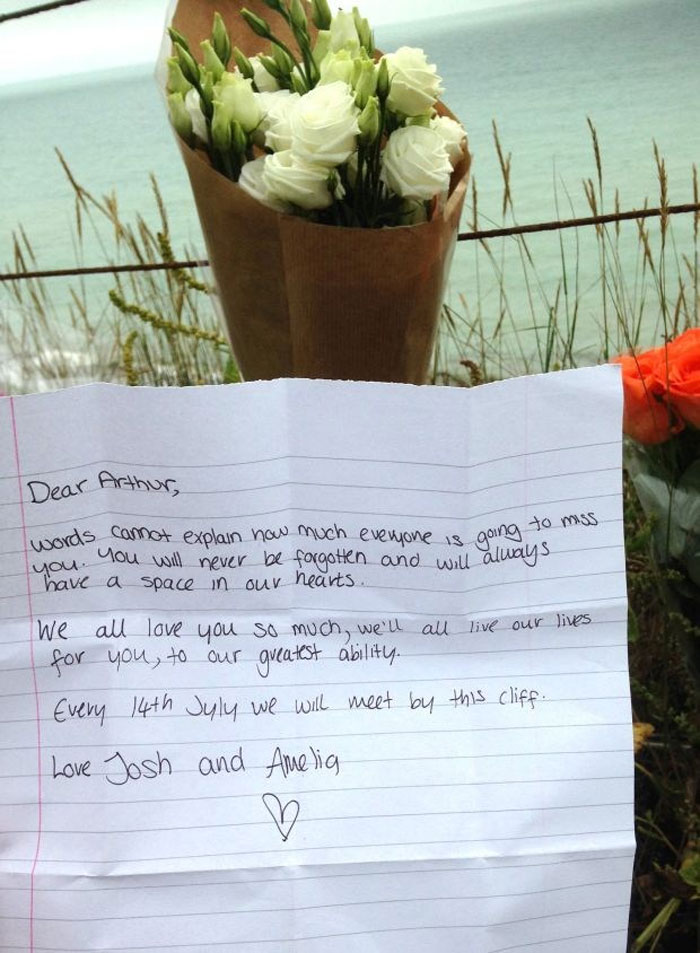 Dear Arthur,
words cannot explain how much everyone is going to miss
you. You will never be forgotten and will always
have a space in our hearts.
We all love you so much, we'll all live our lives
for you, to our greatest ability.
Every 14th July we will meet by this cliff.
Love Josh and Amelia